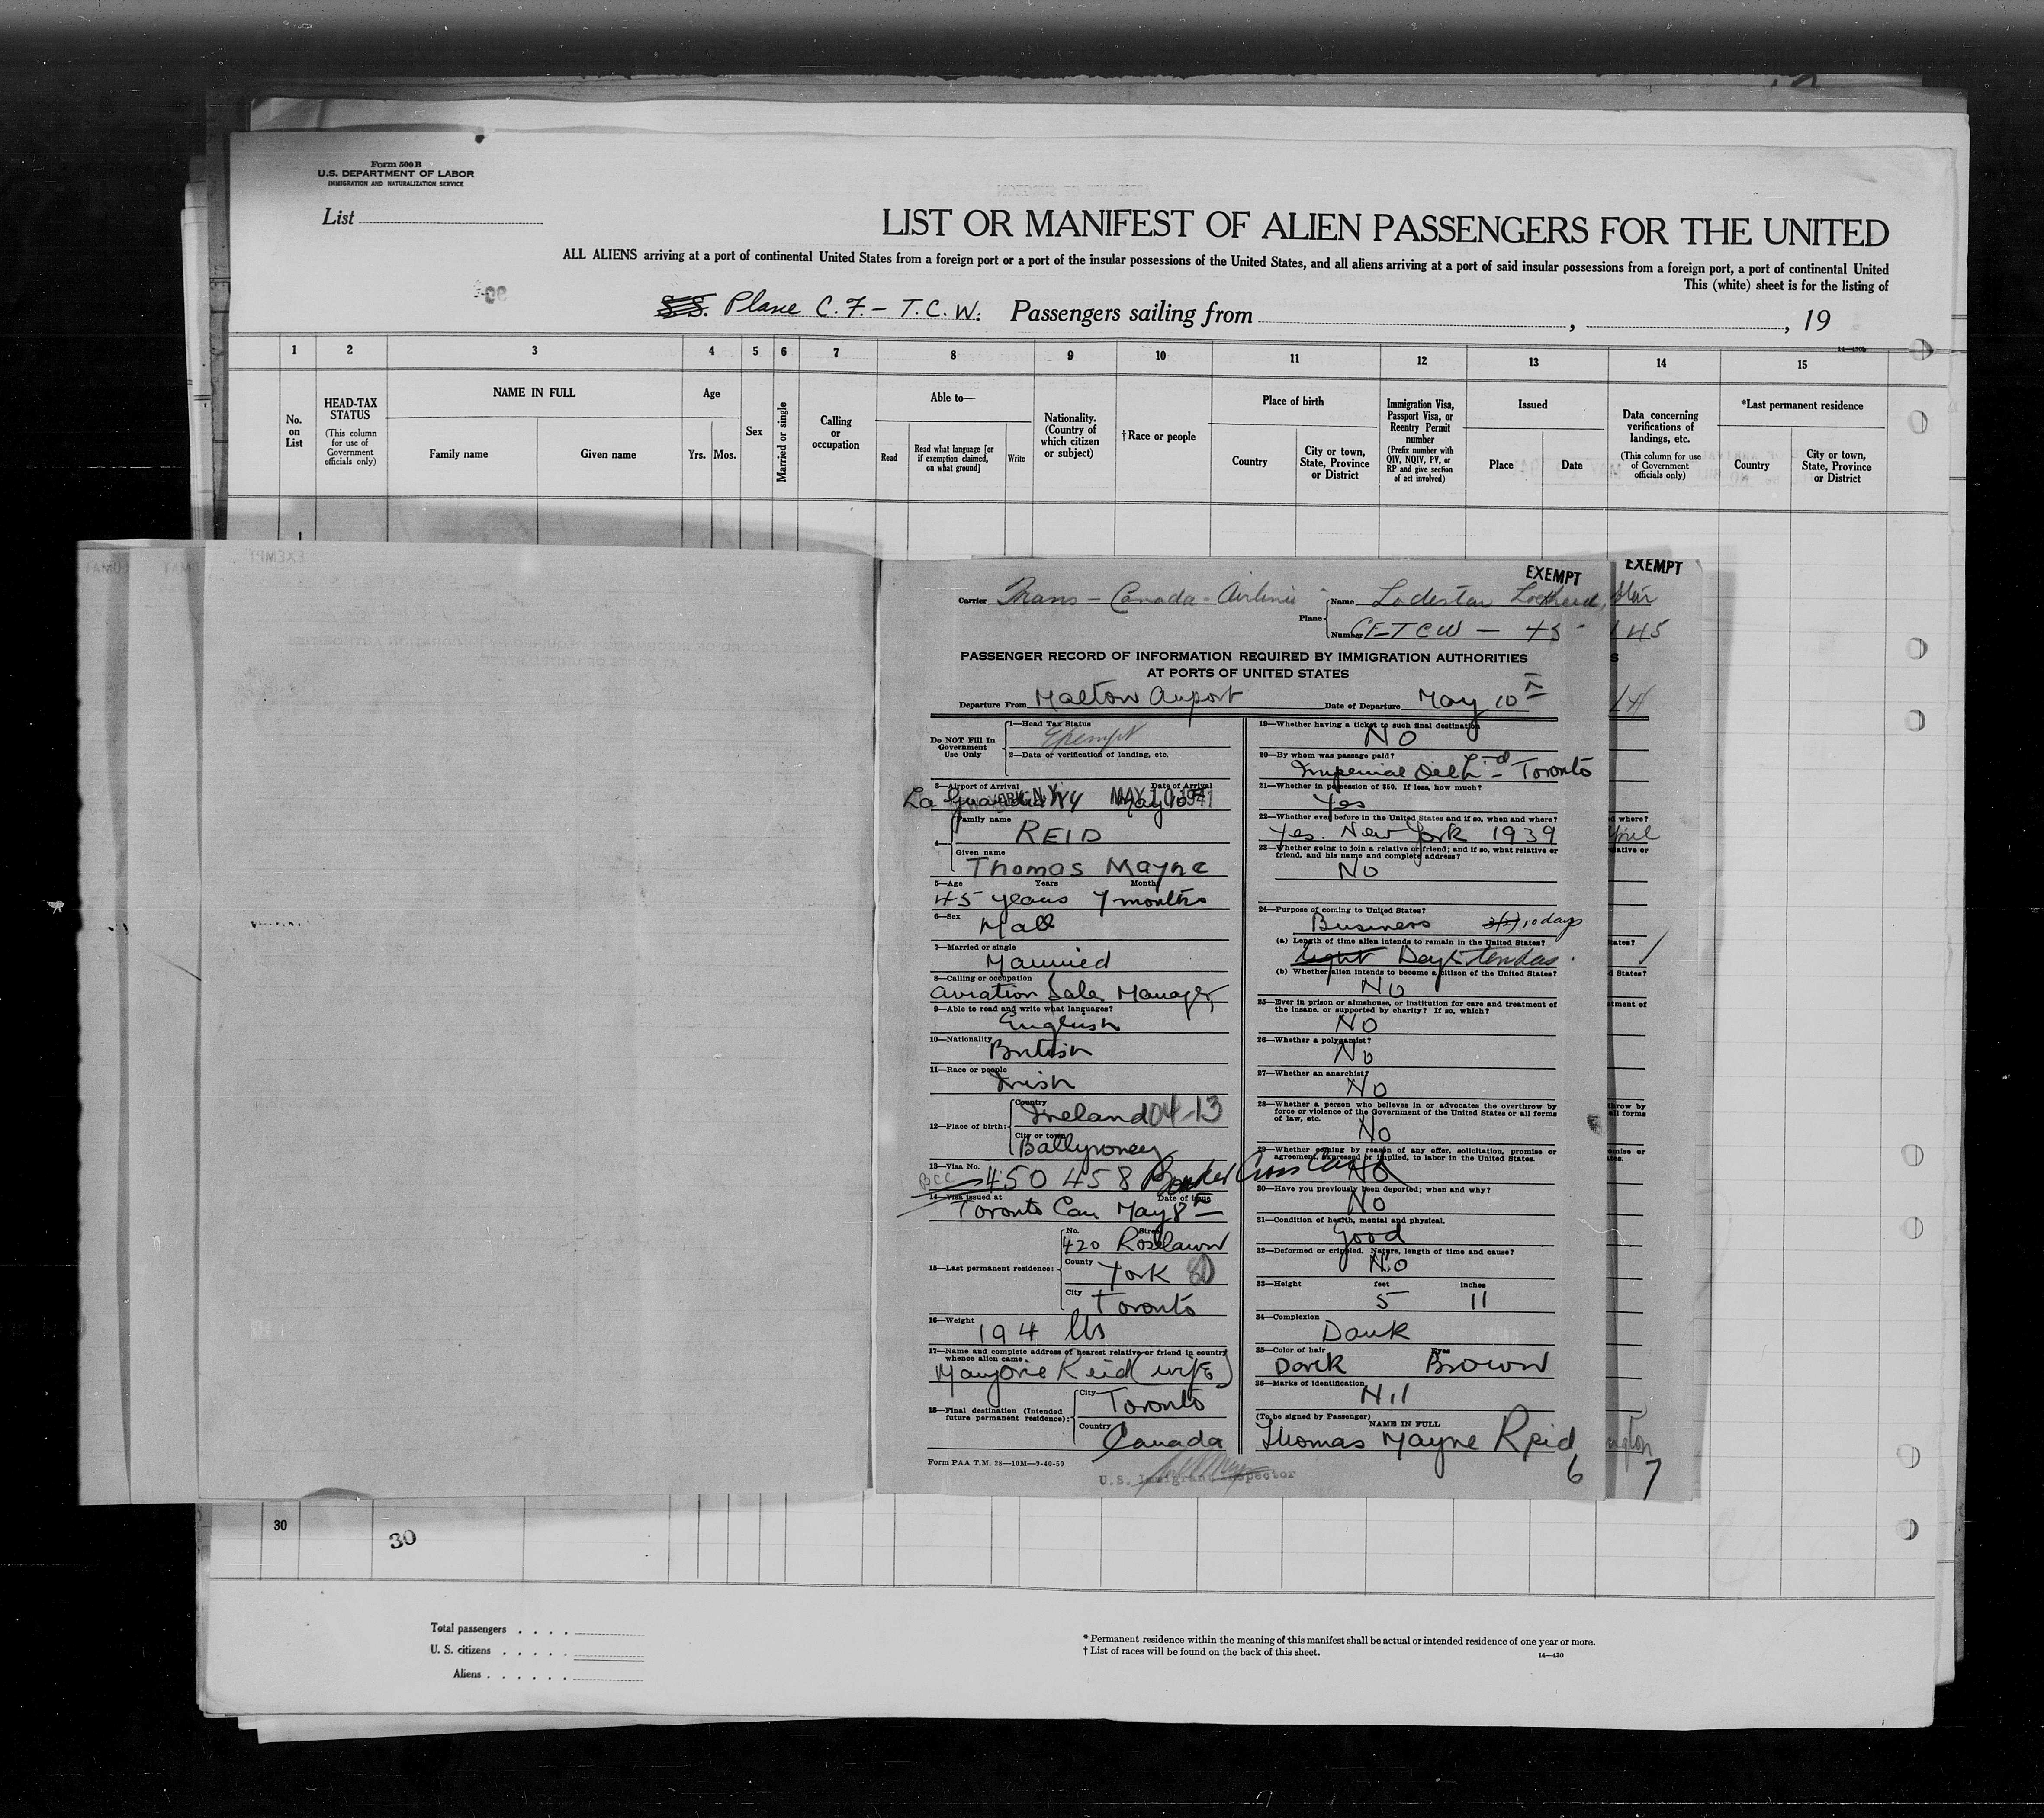 Form 500 B
U.S. DEPARTMENT OF LABOR
IMMIGRATION AND NATURALIZATION SERVICE
List
LIST OR MANIFEST OF ALIEN PASSENGERS FOR THE UNITED
ALL ALIENS arriving at a port of continental United States from a foreign port or a port of the insular possessions of the United States, and all aliens arriving at a port of said insular possessions from a foreign port, a port of continental United
This (white) sheet is for the listing of
S.S. Plane C.F.-T.C.W. Passengers sailing from , , 19
14—430b
1 2 3 4 5 6 7 8 9 10 11 12 13 14 15
No. on List
HEAD-TAX STATUS
(This column for use of Government officials only)
NAME IN FULL
Family name Given name
Age
Yrs. Mos.
Sex
Married or single
Calling or occupation
Able to—
Read
Read what language [or if exemption claimed, on what ground]
Write
Nationality. (Country of which citizen or subject)
† Race or people
Place of birth
Country
City or town, State, Province or District
Immigration Visa, Passport Visa, or Reentry Permit number
(Prefix number with QIV, NQIV, PV, or RP and give section of act involved)
Issued
Place Date
Data concerning verifications of landings, etc.
(This column for use of Government officials only)
*Last permanent residence
Country
City or town, State, Province or District
1
EXEMPT
EXEMPT
Carrier Trans-Canada-Airlines
Plane
Name Lodestar Lockheed,
Number CF-TCW - 45
45
PASSENGER RECORD OF INFORMATION REQUIRED BY IMMIGRATION AUTHORITIES
AT PORTS OF UNITED STATES
Departure From Malton Airport Date of Departure May 10th
Do NOT Fill In Government Use Only
1—Head Tax Status
Exempt
2—Data or verification of landing, etc.
3—Airport of Arrival Date of Arrival
La Guardia NY May 10th
N.Y. MAY 10 1941
4—
Family name
REID
Given name
Thomas Mayne
5—Age Years Month
45 years 7 months
6—Sex
Male
7—Married or single
Married
8—Calling or occupation
Aviation Sales Manager
9—Able to read and write what languages?
English
10—Nationality
British
11—Race or people
Irish
12—Place of birth:
Country
Ireland 04-13
City or town
Ballyroney
13—Visa No.
BCC 450 458 Border Cross Card
14—Visa issued at Date of issue
Toronto Can May 8th
15—Last permanent residence:
No. Street
420 Roselawn
County
York 80
City
Toronto
16—Weight
194 lbs
17—Name and complete address of nearest relative or friend in country whence alien came
Marjorie Reid (wife)
18—Final destination (Intended future permanent residence):
City
Toronto
Country
Canada
Form PAA T.M. 28—10M—9-40-50
U.S. Immigrant Inspector
19—Whether having a ticket to such final destination
NO
20—By whom was passage paid?
Imperial Oil Ltd Toronto
21—Whether in possession of $50. If less, how much?
Yes
22—Whether ever before in the United States and if so, when and where?
Yes. New York 1939
23—Whether going to join a relative or friend; and if so, what relative or
friend, and his name and complete address?
NO
24—Purpose of coming to United States?
Business 3(2), 10 days
(a) Length of time alien intends to remain in the United States?
Eight Days Ten days
(b) Whether alien intends to become a citizen of the United States?
NO
25—Ever in prison or almshouse, or institution for care and treatment of
the insane, or supported by charity? If so, which?
NO
26—Whether a polygamist?
No
27—Whether an anarchist?
NO
28—Whether a person who believes in or advocates the overthrow by
force or violence of the Government of the United States or all forms
of law, etc.
No
29—Whether coming by reason of any offer, solicitation, promise or
agreement, expressed or implied, to labor in the United States.
NO
30—Have you previously been deported; when and why?
NO
31—Condition of health, mental and physical.
Good
32—Deformed or crippled. Nature, length of time and cause?
No
33—Height feet inches
5 11
34—Complexion
Dark
35—Color of hair Eyes
Dark Brown
36—Marks of identification
Nil
(To be signed by Passenger)
NAME IN FULL
Thomas Mayne Reid
6
7
30
30
Total passengers
U. S. citizens
Aliens
* Permanent residence within the meaning of this manifest shall be actual or intended residence of one year or more.
† List of races will be found on the back of this sheet.
14—430